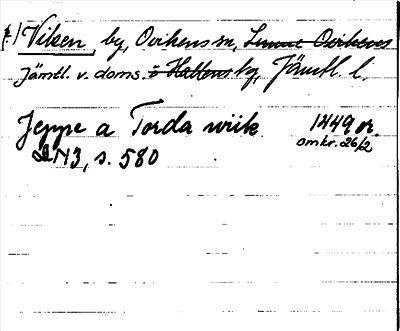 (P.) Viken, by, Ovikens sn, Sunne Ovikens
Jämtl. v. doms. o Hallens ky, Jämtl. l.
Jeppe a Torda wiik 1449 or.
omkr. 26/2
DN3, s. 580